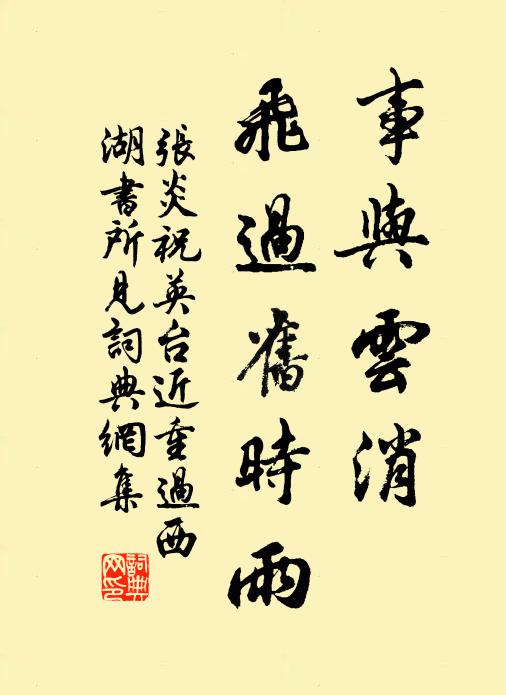 事與雲消
飛過舊時雨
張炎祝英台近重過西
湖書所見詞典網集
詞典
网印